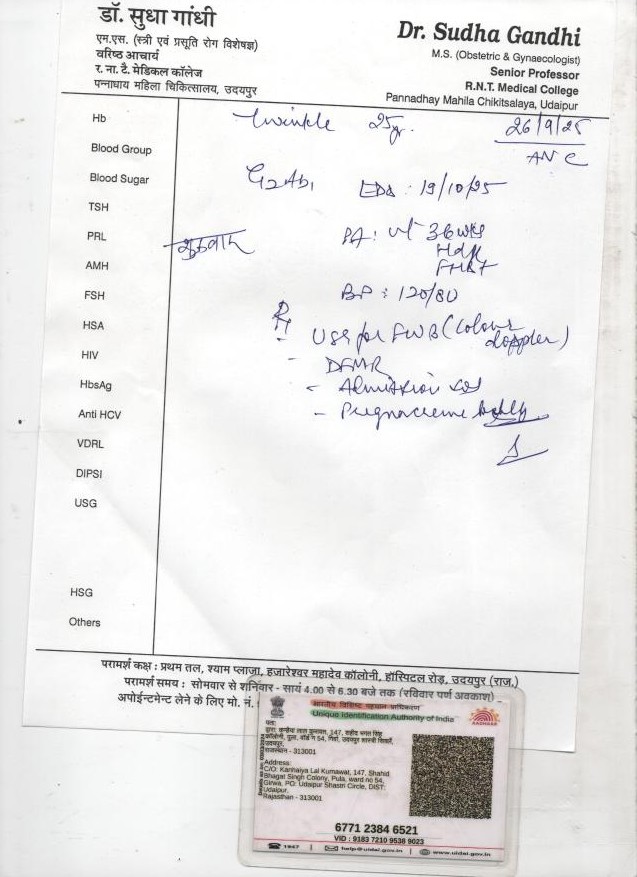 डॉ. सुधा गांधी
एम.एस. (स्त्री एवं प्रसूति रोग विशेषज्ञ)
वरिष्ठ आचार्य
र. ना. टै. मेडिकल कॉलेज
पन्नाधाय महिला चिकित्सालय, उदयपुर
Dr. Sudha Gandhi
M.S. (Obstetric & Gynaecologist)
Senior Professor
R.N.T. Medical College
Pannadhay Mahila Chikitsalaya, Udaipur
Hb
Blood Group
Blood Sugar
TSH
PRL
AMH
FSH
HSA
HIV
HbsAg
Anti HCV
VDRL
DIPSI
USG
HSG
Others
Twinkle 25yr. 26/9/25
ANC
G2Ab1 EDD : 19/10/25
शुक्रवार
PA : ut 36wks
FHR+
BP : 120/80
Rx
USG for FWB (Colour doppler)
- DFMR
- Admission sos
- Pregnacreme
परामर्श कक्ष : प्रथम तल, श्याम प्लाज़ा, हजारेश्वर महादेव कॉलोनी, हॉस्पिटल रोड़, उदयपुर (राज.)
परामर्श समय : सोमवार से शनिवार - सायं 4.00 से 6.30 बजे तक (रविवार पूर्ण अवकाश)
अपोईन्टमेन्ट लेने के लिए मो. नं.
भारतीय विशिष्ट पहचान प्राधिकरण
Unique Identification Authority of India
AADHAAR
पता:
राजस्थान - 313001
Address:
C/O: Kanhaiya Lal Kumawat, 147, Shahid
Bhagat Singh Colony, Pula, ward no 54,
Girwa, PO: Udaipur Shastri Circle, DIST:
Udaipur,
Rajasthan - 313001
6771 2384 6521
VID : 9183 7210 9538 9023
1947
help@uidai.gov.in
www.uidai.gov.in